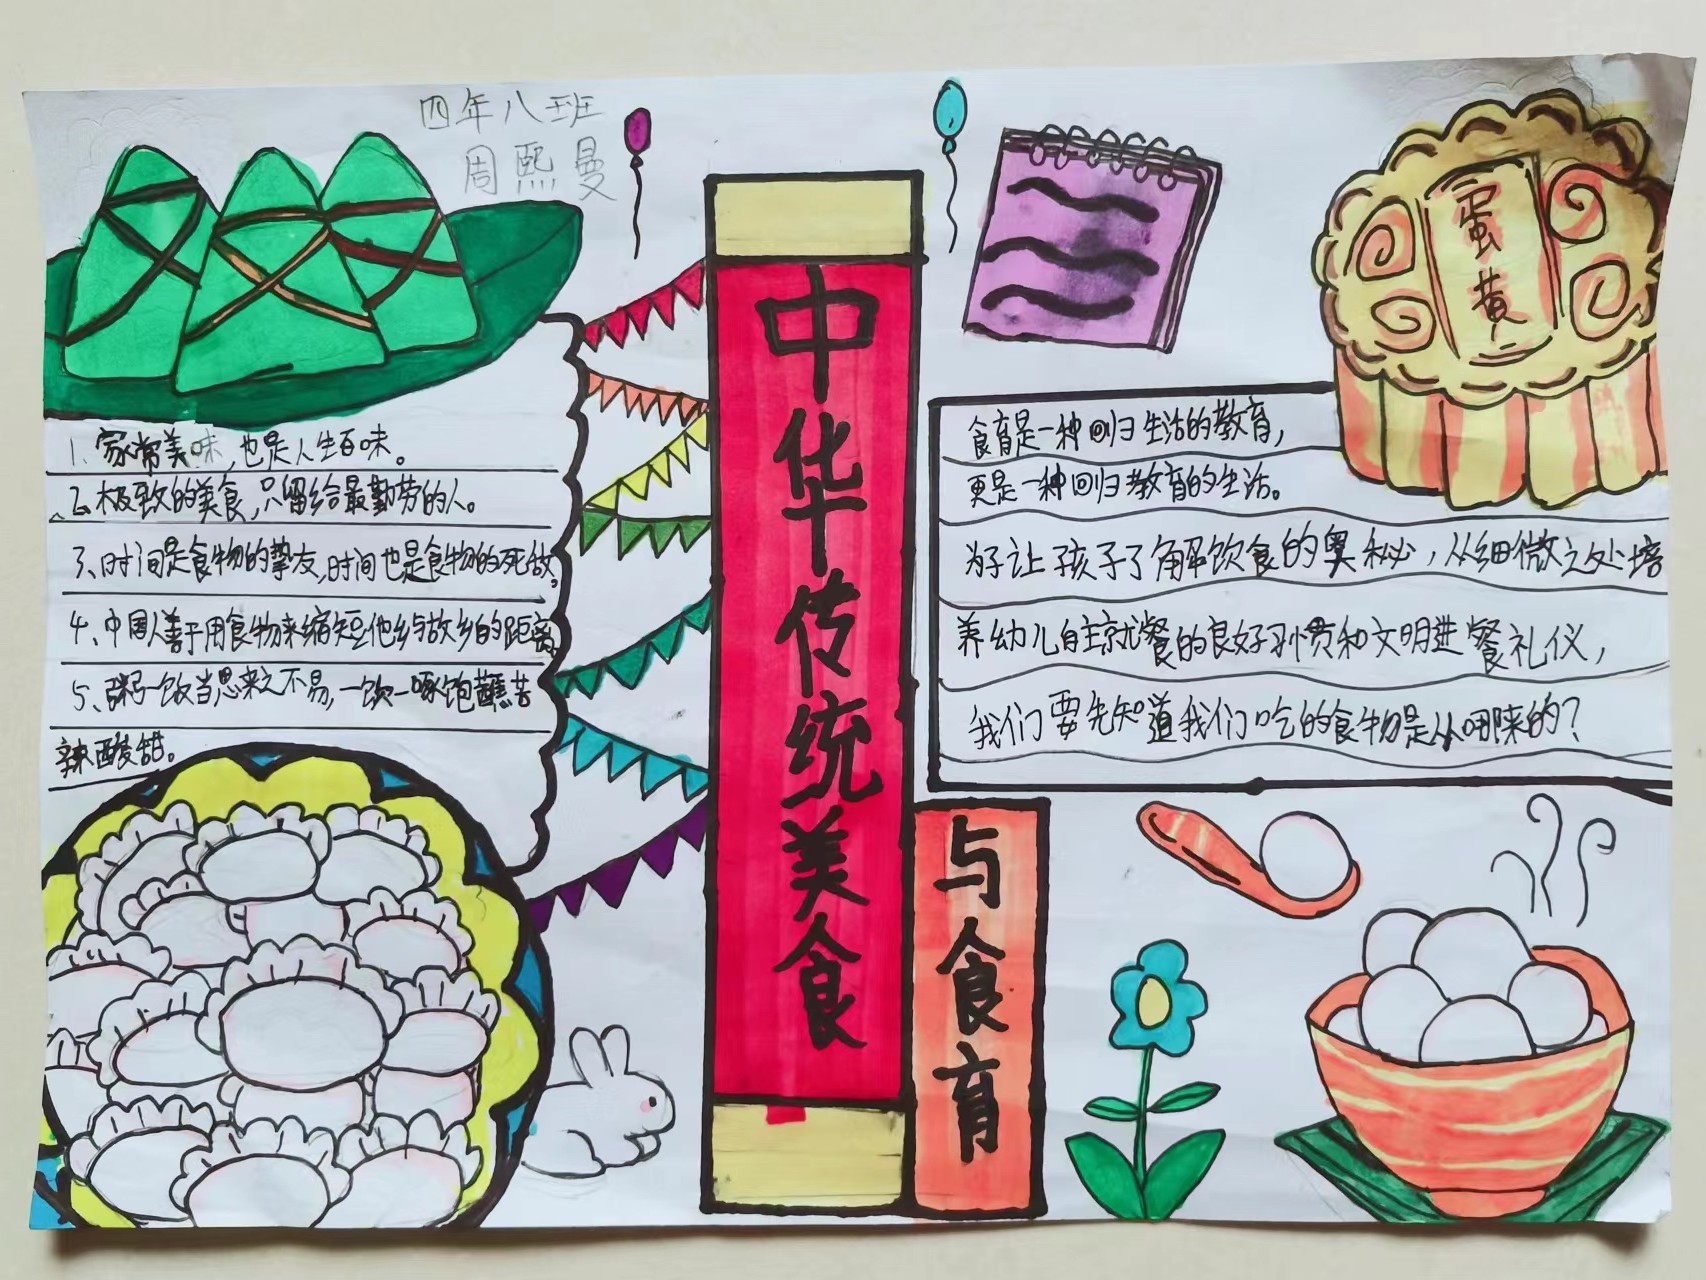 四年八班
周熙曼
中华传统美食
与食育
蛋黄
1、家常美味,也是人生百味。
2、极致的美食,只留给最勤劳的人。
3、时间是食物的挚友,时间也是食物的死敌。
4、中国人善于用食物来缩短他乡与故乡的距离。
5、粥一饭当思来之不易,一饮一啄饱蘸苦
辣酸甜。
食育是一种回归生活的教育,
更是一种回归教育的生活。
为了让孩子了解饮食的奥秘,从细微之处培
养幼儿自主就餐的良好习惯和文明进餐礼仪,
我们要先知道我们吃的食物是从哪来的?